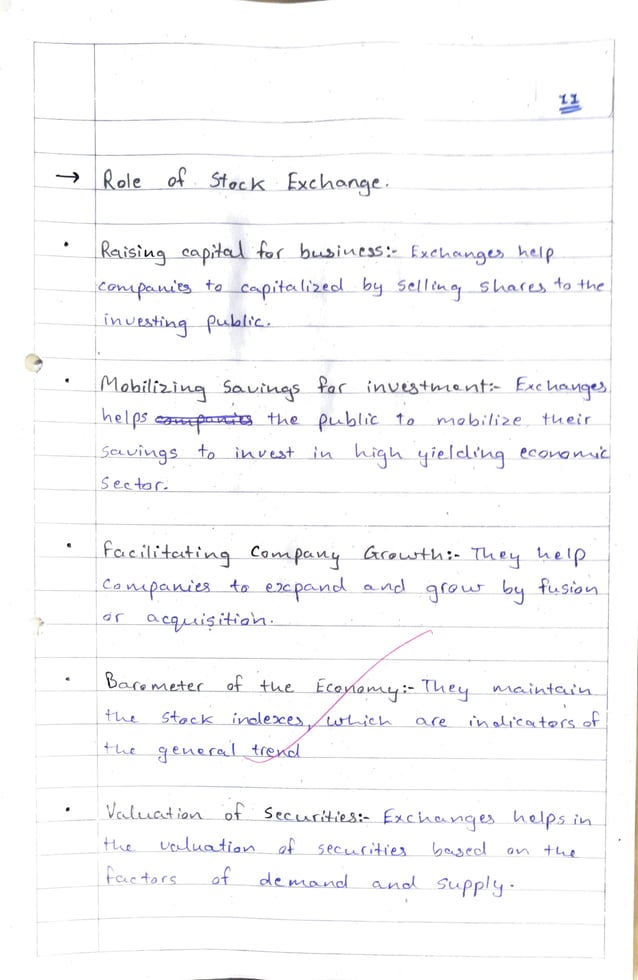 11
→ Role of Stock Exchange.
• Raising capital for business:- Exchanges help
companies to capitalized by selling shares to the
investing public.
• Mobilizing savings for investment:- Exchanges
helps companies the public to mobilize their
savings to invest in high yielding economic
sector.
• Facilitating Company Growth:- They help
companies to expand and grow by fusion
or acquisition.
• Barometer of the Economy:- They maintain
the stock indexes, which are indicators of
the general trend
• Valuation of Securities:- Exchanges helps in
the valuation of securities based on the
factors of demand and supply.